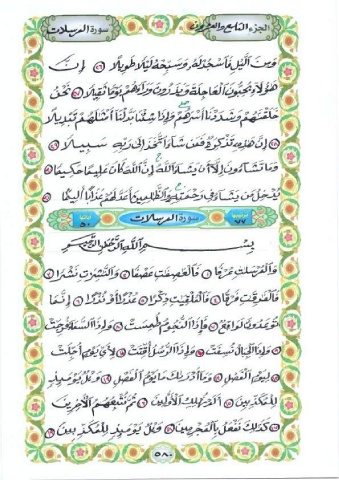 سورة المرسلات الجزء التاسع والعشرون
ومن الليل فاسجد له وسبحه ليلا طويلا ٢٦ إن
هؤلاء يحبون العاجلة ويذرون وراءهم يوما ثقيلا ٢٧ نحن
خلقنهم وشددنا أسرهم وإذا شئنا بدلنا أمثلهم تبديلا
٢٨ إن هذه تذكرة فمن شاء اتخذ إلى ربه سبيلا ٢٩
وما تشاءون إلا أن يشاء الله إن الله كان عليما حكيما ٣٠
يدخل من يشاء في رحمته والظلمين أعد لهم عذابا أليما ٣١
ترتيبها ٧٧ سورة المرسلات آياتها ٥٠
بسم الله الرحمن الرحيم
والمرسلت عرفا ١ فالعصفت عصفا ٢ والنشرت نشرا ٣
فالفرقت فرقا ٤ فالملقيت ذكرا ٥ عذرا أو نذرا ٦ إنما
توعدون لوقع ٧ فإذا النجوم طمست ٨ وإذا السماء فرجت
٩ وإذا الجبال نسفت ١٠ وإذا الرسل أقتت ١١ لأي يوم أجلت ١٢
ليوم الفصل ١٣ وما أدراك ما يوم الفصل ١٤ ويل يومئذ
للمكذبين ١٥ ألم نهلك الأولين ١٦ ثم نتبعهم الآخرين
١٧ كذلك نفعل بالمجرمين ١٨ ويل يومئذ للمكذبين ١٩
٥٨٠